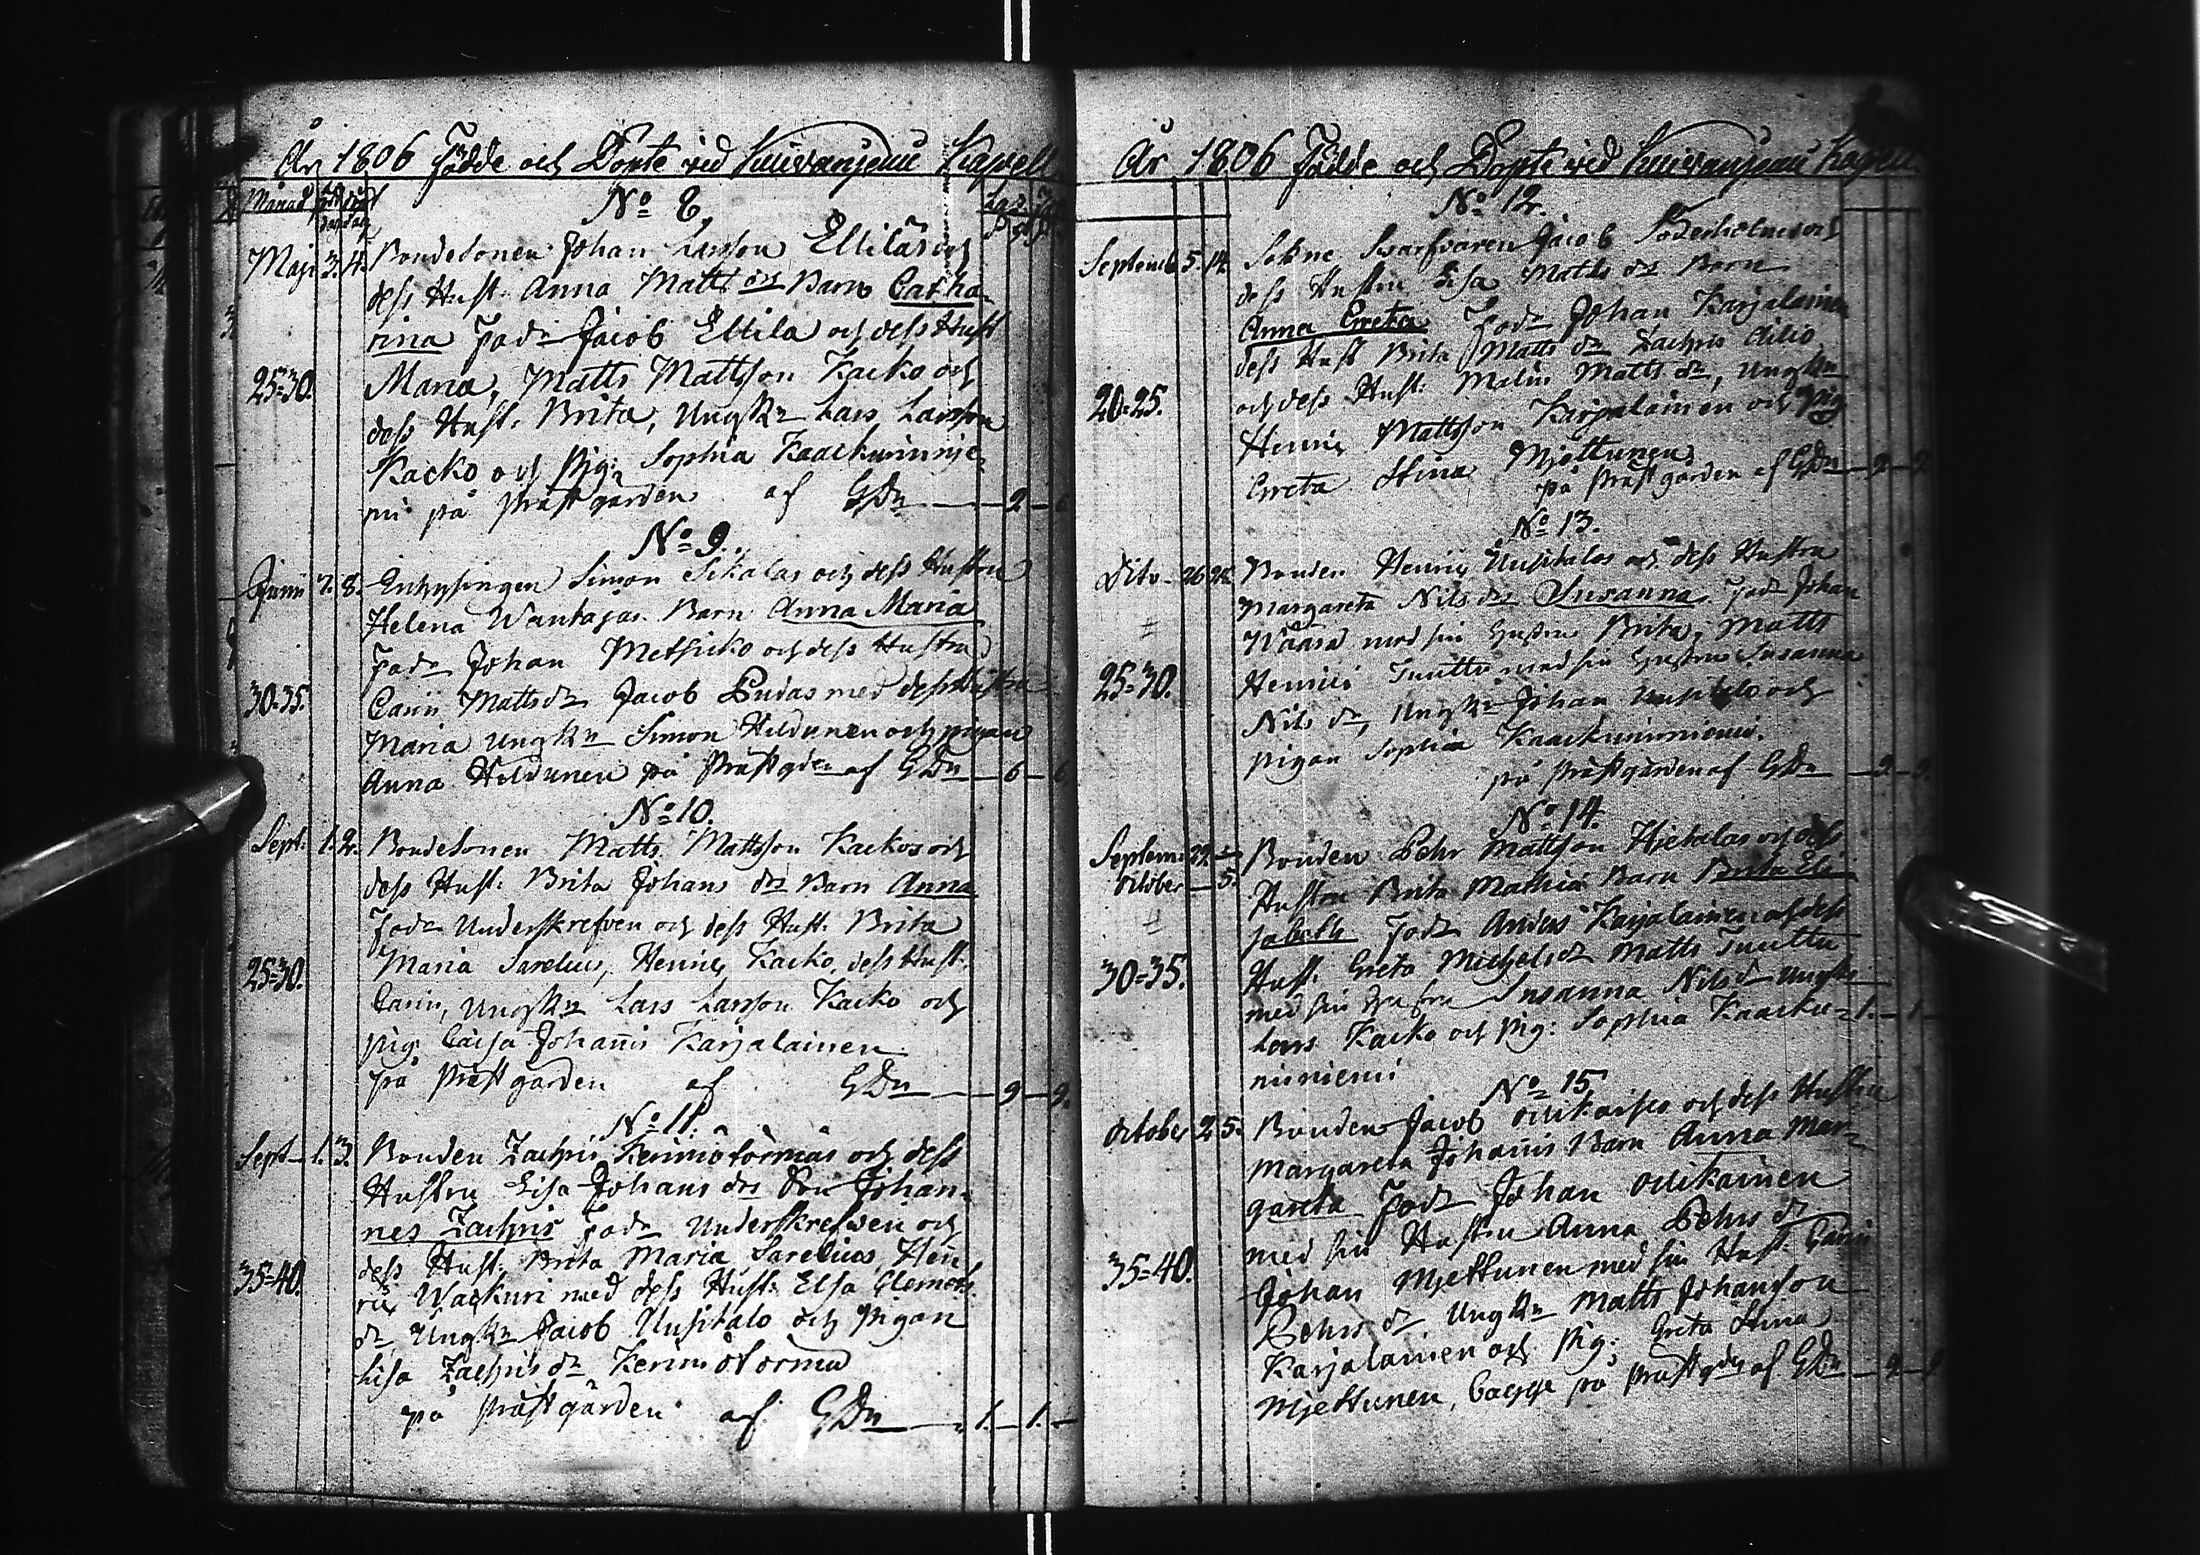 År 1806 Födde och Döpte vid Kuivaniemi Kapell
Månad
No 8.
Maji 3. 4. Bondesonen Johan Larsson Ellilas och
dess Hust. Anna Matts drs Barn Catha-
rina Fad. Jacob Ellila och dess Hust
25-30. Maria, Matts Mattsson Kacko och
dess Hust. Brita, Ungk. Lars Larsson
Kacko och Pig: Sophia Kaackuninie-
mi på Prästgården af GDn — 2 —
No 9.
Junii 7. 8. Enhysingen Simon Sikalas och dess Hustru
Helena Wantajas Barn Anna Maria
Fadr Johan Metsicko och dess Hustru
30-35. Carin Matts dr Jacob Pudas med dess Hustru
Maria Ungkn Simon Hildunen och pigan
Anna Hildunen på Prästgden af GDn — 6 — 6
No 10.
Sept. 1. 2. Bondesonen Matts Mattsson Kackos och
dess Hust. Brita Johans drs Barn Anna
Fadr Underskrefven och dess Hust. Brita
25-30. Maria Sarelius, Henric Kacko, dess Hust.
Carin, Ungkn Lars Larsson Kacko och
pig. Caisa Johans Karjalainen
på Prästgården af GDn — 9 — 9.
No 11.
Sept — 1. 3. Bonden Zachris Keinnötörmäs och dess
Hustru Lisa Johans drs Son Johan-
nes Zachris Fadr Underskrefven och
35-40. dess Hust. Brita Maria Sarelius, Hen
ric Wackuri med dess Hust. Elsa Clemets
dr, Ungkn Jacob Uusitalo och Pigan
Lisa Zachris dr Keinnötörmä
på Prästgården af GDn — 1. — 1. —
År 1806 Födde och Döpte vid Kuivaniemi Kapell
No 12.
Septemb. 5. 14. Sokne Skarfvaren Jacob Söderholms och
dess Hustru Lisa Matts drs Barn
Anna Greta Fadr Johan Karjalainen
dess Hust Brita Matts dr Zachris Ailio
20-25. och dess Hust. Malin Matts dr, Ungkn
Henric Mattsson Karjalainen och Pig
Greta Stina Mjettunen
på Prästgården af GDn — 9 — 9
No 13.
Dito — 26 28. Bonden Henric Uusitalos och dess Hustru
Margareta Nils drs Susanna Fadr Johan
Wäärä med sin Hustru Brita, Matts
25-30. Henrici Tuuttu med sin Hustru Susanna
Nils dr, Ungkn Johan Uusitalo och
pigan Sophia Kaackuniniemi.
på Prästgården af GDn — 9. — 9.
No 14.
Septem. 29. — Bonden Pehr Mattsson Hietalas och dess
October — 5. Hustru Brita Mathiæ Barn Brita Eli-
sabeth Fadr Anders Karjalainen och dess
30-35. Hust. Greta Michels dr Matts Tuuttu
med sin Hustru Susanna Nils dr Ungkn
Lars Kacko och Pig: Sophia Kaacku- 1. — 1 —
niniemi
No 15
October 2. 5. Bonden Jacob och dess Hustru
Margareta Johans Barn Anna Mar-
gareta Fadr Johan Ollikainen
med sin Hustru Anna Pehrs dr
35-40. Johan Mjettunen med sin Hust. Carin
Pehrs dr Ungkn Matts Johansson
Karjalainen och Pig: Greta Stina
Mjettunen, på Prästgden af GDn — 9 — 9